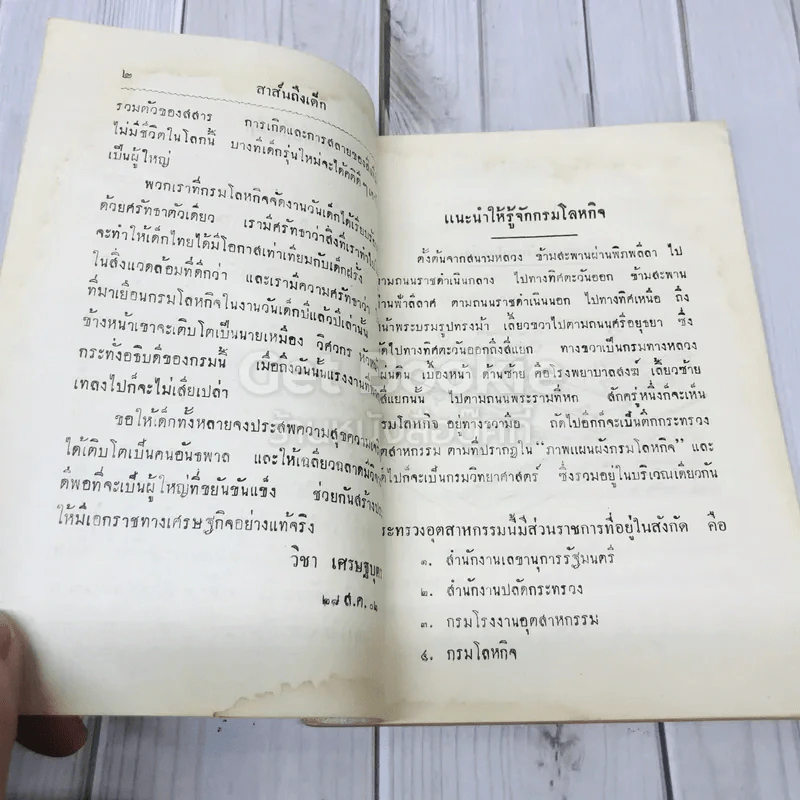 ๒
สาส์นถึงเด็ก
รวมตัวของสสาร การเกิดและการสลายของ
ไม่มีชีวิตในโลกนี้ บางทีเด็กรุ่นใหม่จะได้คติดีๆ
เป็นผู้ใหญ่
พวกเราที่กรมโลหกิจจัดงานวันเด็กได้เรียบร้อย
ด้วยศรัทธาตัวเดียว เรามีศรัทธาว่าสิ่งที่เราทำไป
จะทำให้เด็กไทยได้มีโอกาสเท่าเทียมกับเด็กฝรั่ง
ในสิ่งแวดล้อมที่ดีกว่า และเรามีความศรัทธาว่า
ที่มาเยือนกรมโลหกิจในงานวันเด็กปีแล้วปีเล่านั้น
ข้างหน้าเขาจะเติบโตเป็นนายเหมือง วิศวกร หัวหน้า
กระทั่งอธิบดีของกรมนี้ เมื่อถึงวันนั้นแรงงานที่
เทลงไปก็จะไม่เสียเปล่า
ขอให้เด็กทั้งหลายจงประสพความสุขความ
ได้เติบโตเป็นคนอันธพาล และให้เฉลียวฉลาดมี
ดีพอที่จะเป็นผู้ใหญ่ที่ขยันขันแข็ง ช่วยกันสร้าง
ให้มีเอกราชทางเศรษฐกิจอย่างแท้จริง
วิชา เศรษฐบุตร
๒๘ ส.ค. ๐๒
แนะนำให้รู้จักกรมโลหกิจ
ตั้งต้นจากสนามหลวง ข้ามสะพานผ่านพิภพลีลา ไป
ตามถนนราชดำเนินกลาง ไปทางทิศตะวันออก ข้ามสะพาน
ผ่านฟ้าลีลาศ ตามถนนราชดำเนินนอก ไปทางทิศเหนือ ถึง
หน้าพระบรมรูปทรงม้า เลี้ยวขวาไปตามถนนศรีอยุธยา ซึ่ง
ตัดไปทางทิศตะวันออกถึงสี่แยก ทางขวาเป็นกรมทางหลวง
แผ่นดิน เบื้องหน้า ด้านซ้าย คือโรงพยาบาลสงฆ์ เลี้ยวซ้าย
สี่แยกนั้น ไปตามถนนพระรามที่หก สักครู่หนึ่งก็จะเห็น
กรมโลหกิจ อยู่ทางขวามือ ถัดไปอีกก็จะเป็นตึกกระทรวง
อุตสาหกรรม ตามที่ปรากฏใน “ภาพแผนผังกรมโลหกิจ” และ
ต่อไปก็จะเป็นกรมวิทยาศาสตร์ ซึ่งรวมอยู่ในบริเวณเดียวกัน
กระทรวงอุตสาหกรรมนี้มีส่วนราชการที่อยู่ในสังกัด คือ
๑. สำนักงานเลขานุการรัฐมนตรี
๒. สำนักงานปลัดกระทรวง
๓. กรมโรงงานอุตสาหกรรม
๔. กรมโลหกิจ